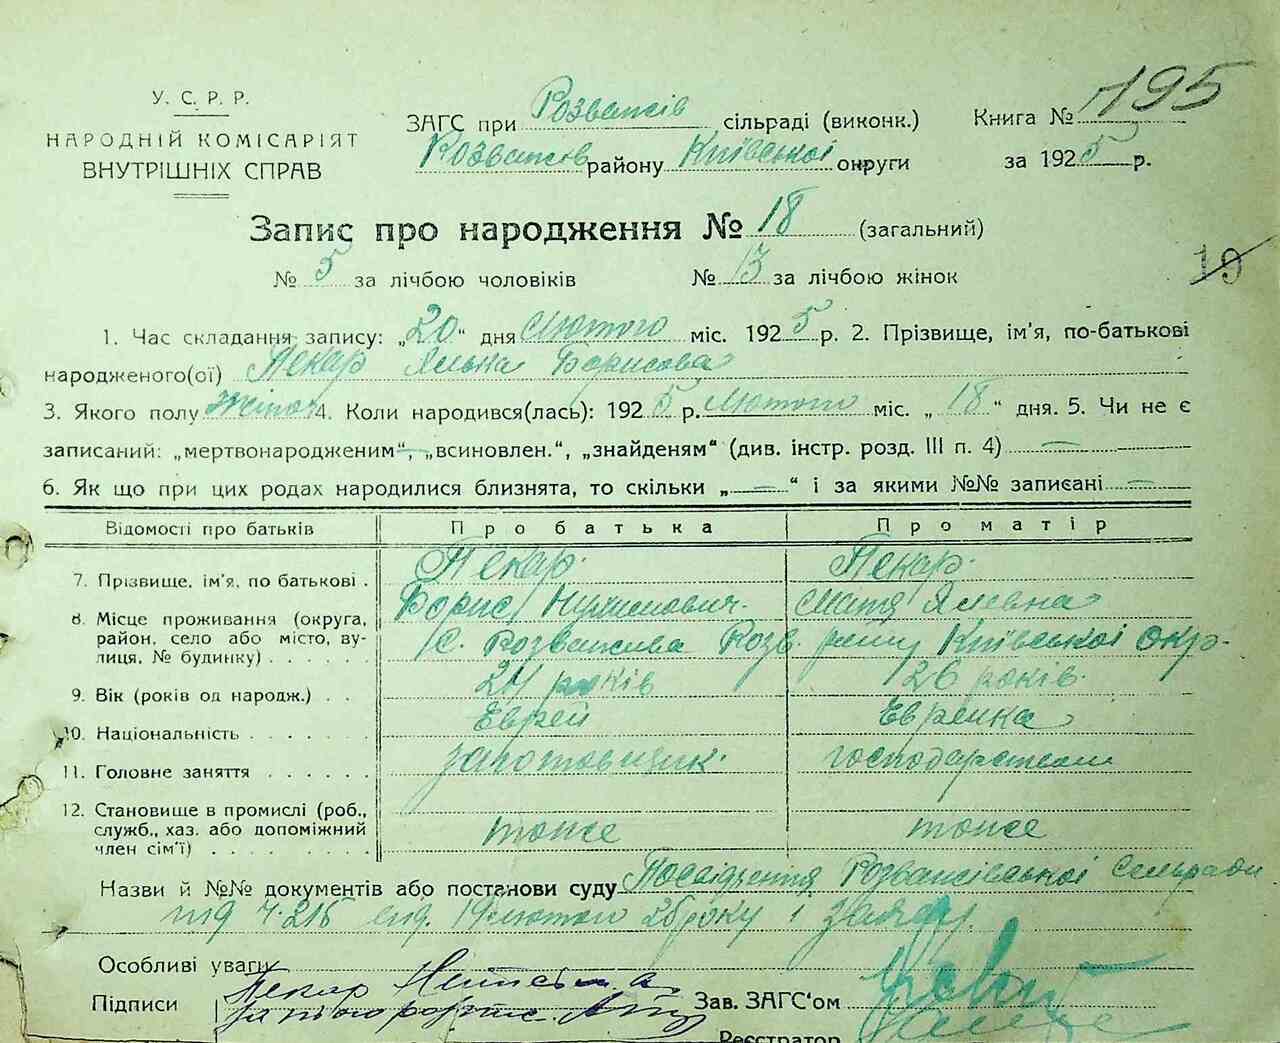 У. С. Р. Р.
НАРОДНІЙ КОМІСАРІЯТ
ВНУТРІШНІХ СПРАВ
ЗАГС при Розважів сільраді (виконк.)
Розважів району Київської округи
Книга № 195
за 1925 р.
Запис про народження № 18 (загальний)
№ 5 за лічбою чоловіків № 13 за лічбою жінок
19
1. Час складання запису: „20“ дня Лютого міс. 1925 р. 2. Прізвище, ім'я, по-батькові
народженого(ої) Пекар Борисова
3. Якого полу жіноч 4. Коли народився(лась): 1925 р. Лютого міс. „18“ дня. 5. Чи не є
записаний: „мертвонародженим“, „всиновлен.“, „знайденям“ (див. інстр. розд. III п. 4) —
6. Як що при цих родах народилися близнята, то скільки „—“ і за якими №№ записані —
Відомості про батьків Про батька Про матір
7. Прізвище, ім'я, по батькові . Пекар. Пекар.
Борис
8. Місце проживання (округа,
район, село або місто, ву-
лиця, № будинку) . . . . . С. Розважева Розв. рану Київської окр.
9. Вік (років од народж.) . . 24 років 26 років.
10. Національність . . . . . . Еврей Еврейка
11. Головне заняття . . . . . . заготовщик. господарством
12. Становище в промислі (роб.,
служб., хаз. або допоміжний
член сім'ї) . . . . . . . . тоже тоже
Назви й №№ документів або постанови суду Посвідчення Розважівської Сельради
від 19 лютого 25 року і
Особливі уваги
Підписи Пекар
Зав. ЗАГС'ом
Реєстратор